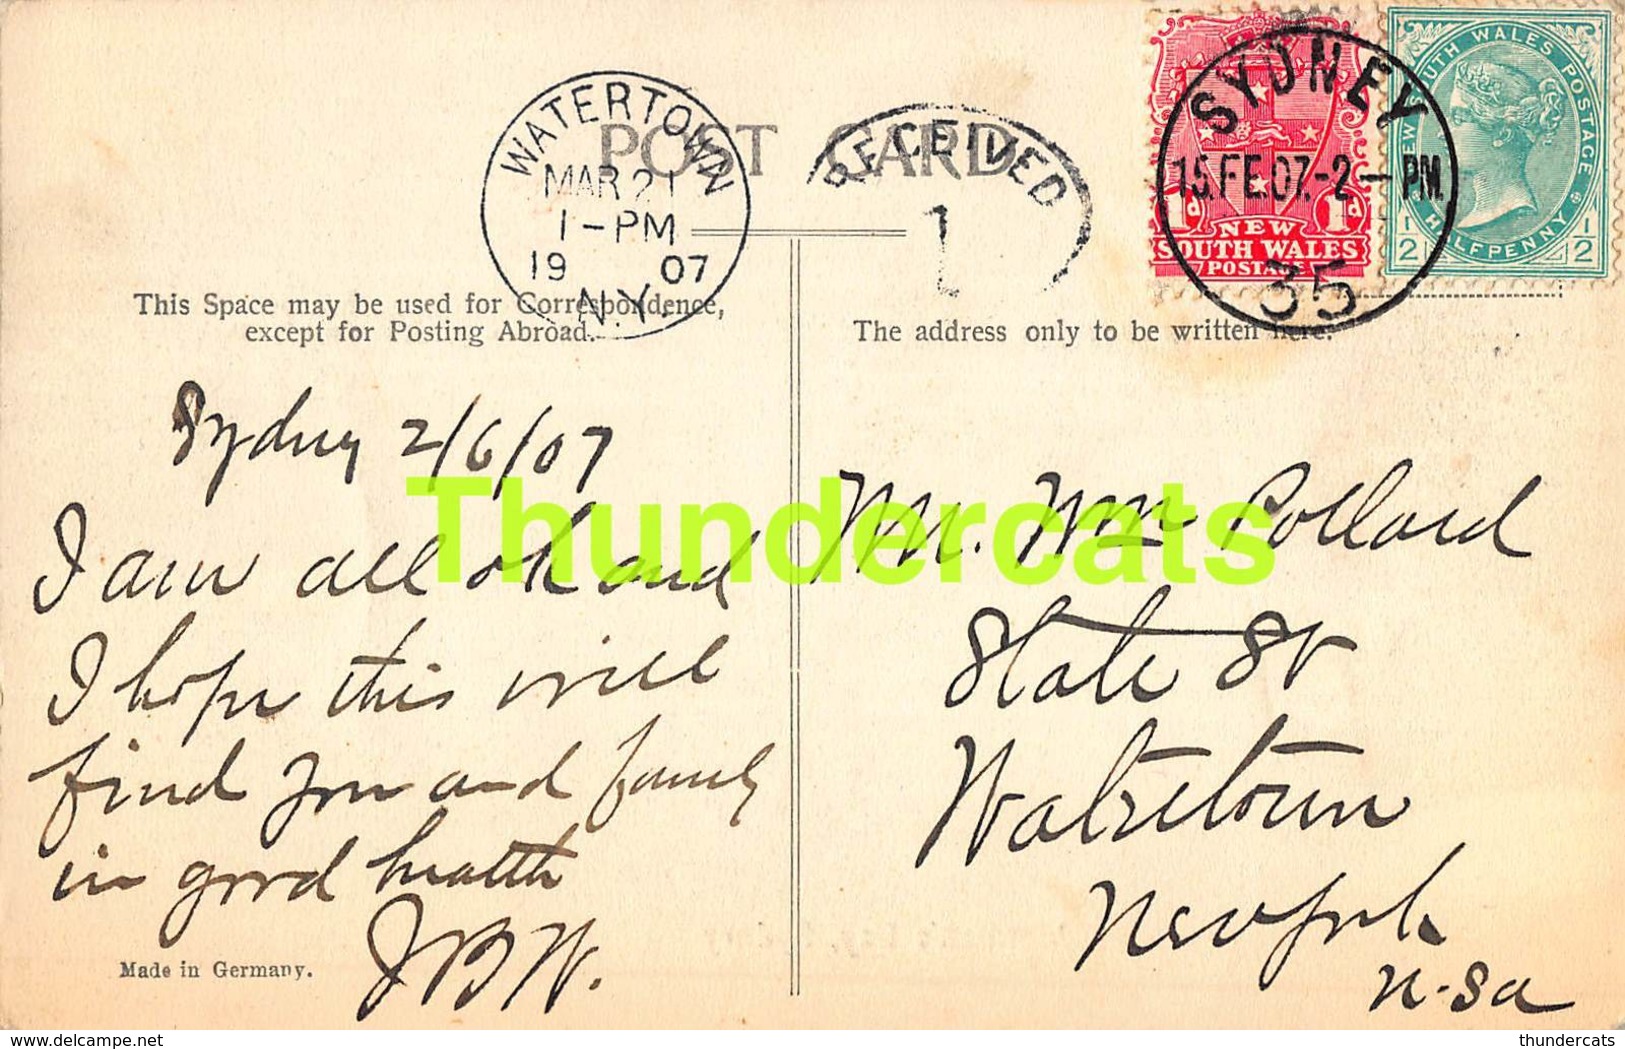 POST CARD
WATERTOWN
MAR 21
1-PM
19 07
N.Y.
RECEIVED
1
SYDNEY
15.FE.07.-2-PM.
35
1d 1d
NEW
SOUTH WALES
POSTAGE
NEW SOUTH WALES POSTAGE
HALFPENNY
1/2 1/2
This Space may be used for Correspondence,
except for Posting Abroad.
The address only to be written here.
Sydney 2/6/07
I am all ok and
I hope this will
find you and family
in good health
JBW.
Made in Germany.
Mr. Wm Pollard
State St
Watertown
New York
U.Sa
Thundercats
delcampe.net
thundercats